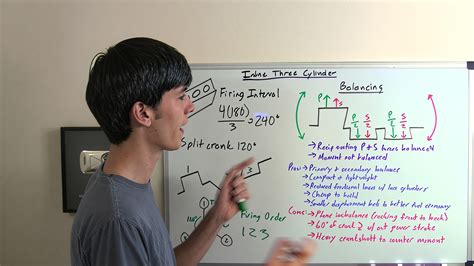 Inline Three Cylinder
Firing Interval
4(180)
3
= 240°
Split crank 120°
3
1
Firing Order
1 2 3
1
2
Balancing
P S
P S
2 2
P S
2 2
→ Reciprocating P & S forces balanced
→ Moment not balanced
Pros → Primary + secondary balance
→ Compact + lightweight
→ Reduced frictional losses w/ less cylinders
→ Cheap to build
→ Smaller displacement leads to better fuel economy
Cons: → Plane imbalance (rocking front to back)
→ 60° of crank w/ out power stroke
→ Heavy crankshaft to counter moment